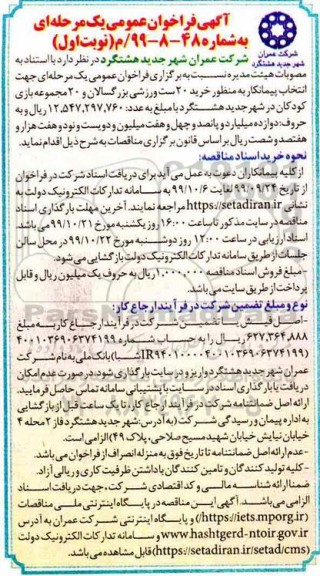 آگهی فراخوان عمومی یک مرحله ای
به شماره ۴۸-۸-۹۹/م (نوبت اول)
شرکت عمران
شهر جدید هشتگرد
شرکت عمران شهر جدید هشتگرد در نظر دارد با استناد به
مصوبات هیئت مدیره نسبت به برگزاری فراخوان عمومی یک مرحله ای جهت
انتخاب پیمانکار به منظور خرید ۲۰ ست ورزشی بزرگسالان و ۲۰ مجموعه بازی
کودکان در شهر جدید هشتگرد با مبلغ به عدد: ۱۲,۵۴۷,۲۹۷,۷۶۰ ریال و به
حروف: دوازده میلیارد و پانصد و چهل و هفت میلیون و دویست و نود و هفت هزار و
هفتصد و شصت ریال بر اساس قانون برگزاری مناقصات به شرح ذیل اقدام نماید.
نحوه خرید اسناد مناقصه:
از کلیه پیمانکاران دعوت به عمل می آید برای دریافت اسناد شرکت در فراخوان
از تاریخ ۹۹/۰۹/۲۴ لغایت ۹۹/۱۰/۶ به سامانه تدارکات الکترونیک دولت به
نشانی https://setadiran.ir مراجعه نمایند. آخرین مهلت بارگذاری اسناد
مناقصه در سایت مذکور تا ساعت ۱۶:۰۰ روز یکشنبه مورخ ۹۹/۱۰/۲۱ می باشد.
اسناد ارزیابی در ساعت ۱۲:۰۰ روز دوشنبه مورخ ۹۹/۱۰/۲۲ در محل سالن
جلسات از طریق سامانه تدارکات الکترونیک دولت بازگشایی می شود.
-مبلغ فروش اسناد مناقصه ۱,۰۰۰,۰۰۰ ریال به حروف یک میلیون ریال و قابل
پرداخت از طریق سایت می باشد.
نوع و مبلغ تضمین شرکت در فرآیند ارجاع کار:
-اصل فیش یا تضمین شرکت در فرآیند ارجاع کار به مبلغ
۶۲۷,۳۶۴,۸۸۸ ریال را به حساب شماره ۴۰۰۱۰۳۶۹۰۶۳۷۴۱۹۹
شبا) بانک ملی به نام شرکت
عمران شهر جدید هشتگرد واریز و در سایت بارگذاری شود. در صورت عدم امکان
دریافت یا بارگذاری اسناد در سایت با پشتیبانی سامانه تماس حاصل فرمایید.
ارائه اصل ضمانتنامه شرکت در فرآیند ارجاع کار، تا یک ساعت قبل از بازگشایی
به اداره پیمان و رسیدگی شرکت (به آدرس: شهر جدید هشتگرد فاز ۲ محله ۴
خیابان نیایش خیابان شهید مسیح صلاحی، پلاک ۴۹) الزامی است.
-عدم ارائه اصل ضمانتنامه تا تاریخ فوق به منزله انصراف از فراخوان می باشد.
-کلیه تولید کنندگان و تامین کنندگان با داشتن ظرفیت کاری و ریالی آزاد.
ضمنا ارائه شناسه مالی و کد اقتصادی شرکت، جهت دریافت اسناد
الزامی می باشد. آگهی این مناقصه در پایگاه اینترنتی ملی مناقصات
(https://iets.mporg.ir) و پایگاه اینترنتی شرکت عمران به آدرس
www.hashtgerd-ntoir.gov.ir و سامانه تدارکات الکترونیک دولت
(https://setadiran.ir/setad/cms) قابل مشاهده می باشد.